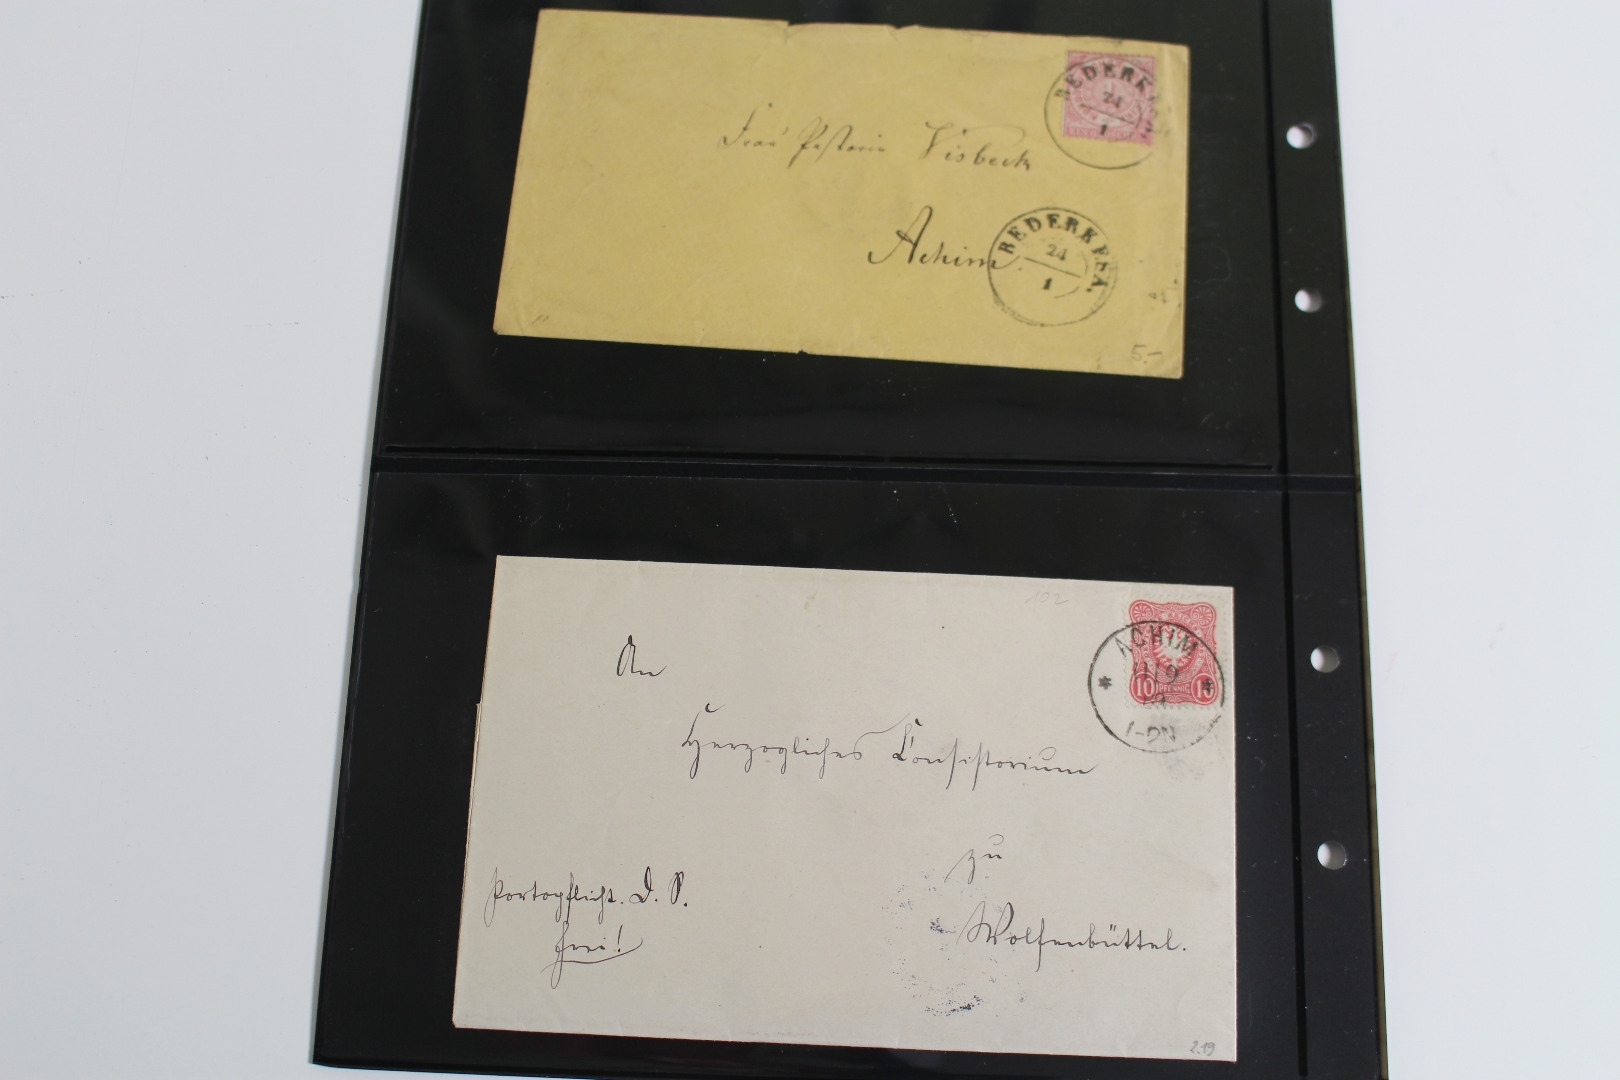 BEDERK
24
1
Frau Pastorin Visbeck
Achim.
BEDERKESA.
24
1
5.-
102
ACHIM
9
1-2N
10 PFENNIG 10
An
Herzogliches Consistorium
zu
Wolfenbüttel.
portopflicht. D. S.
frei!
2.19